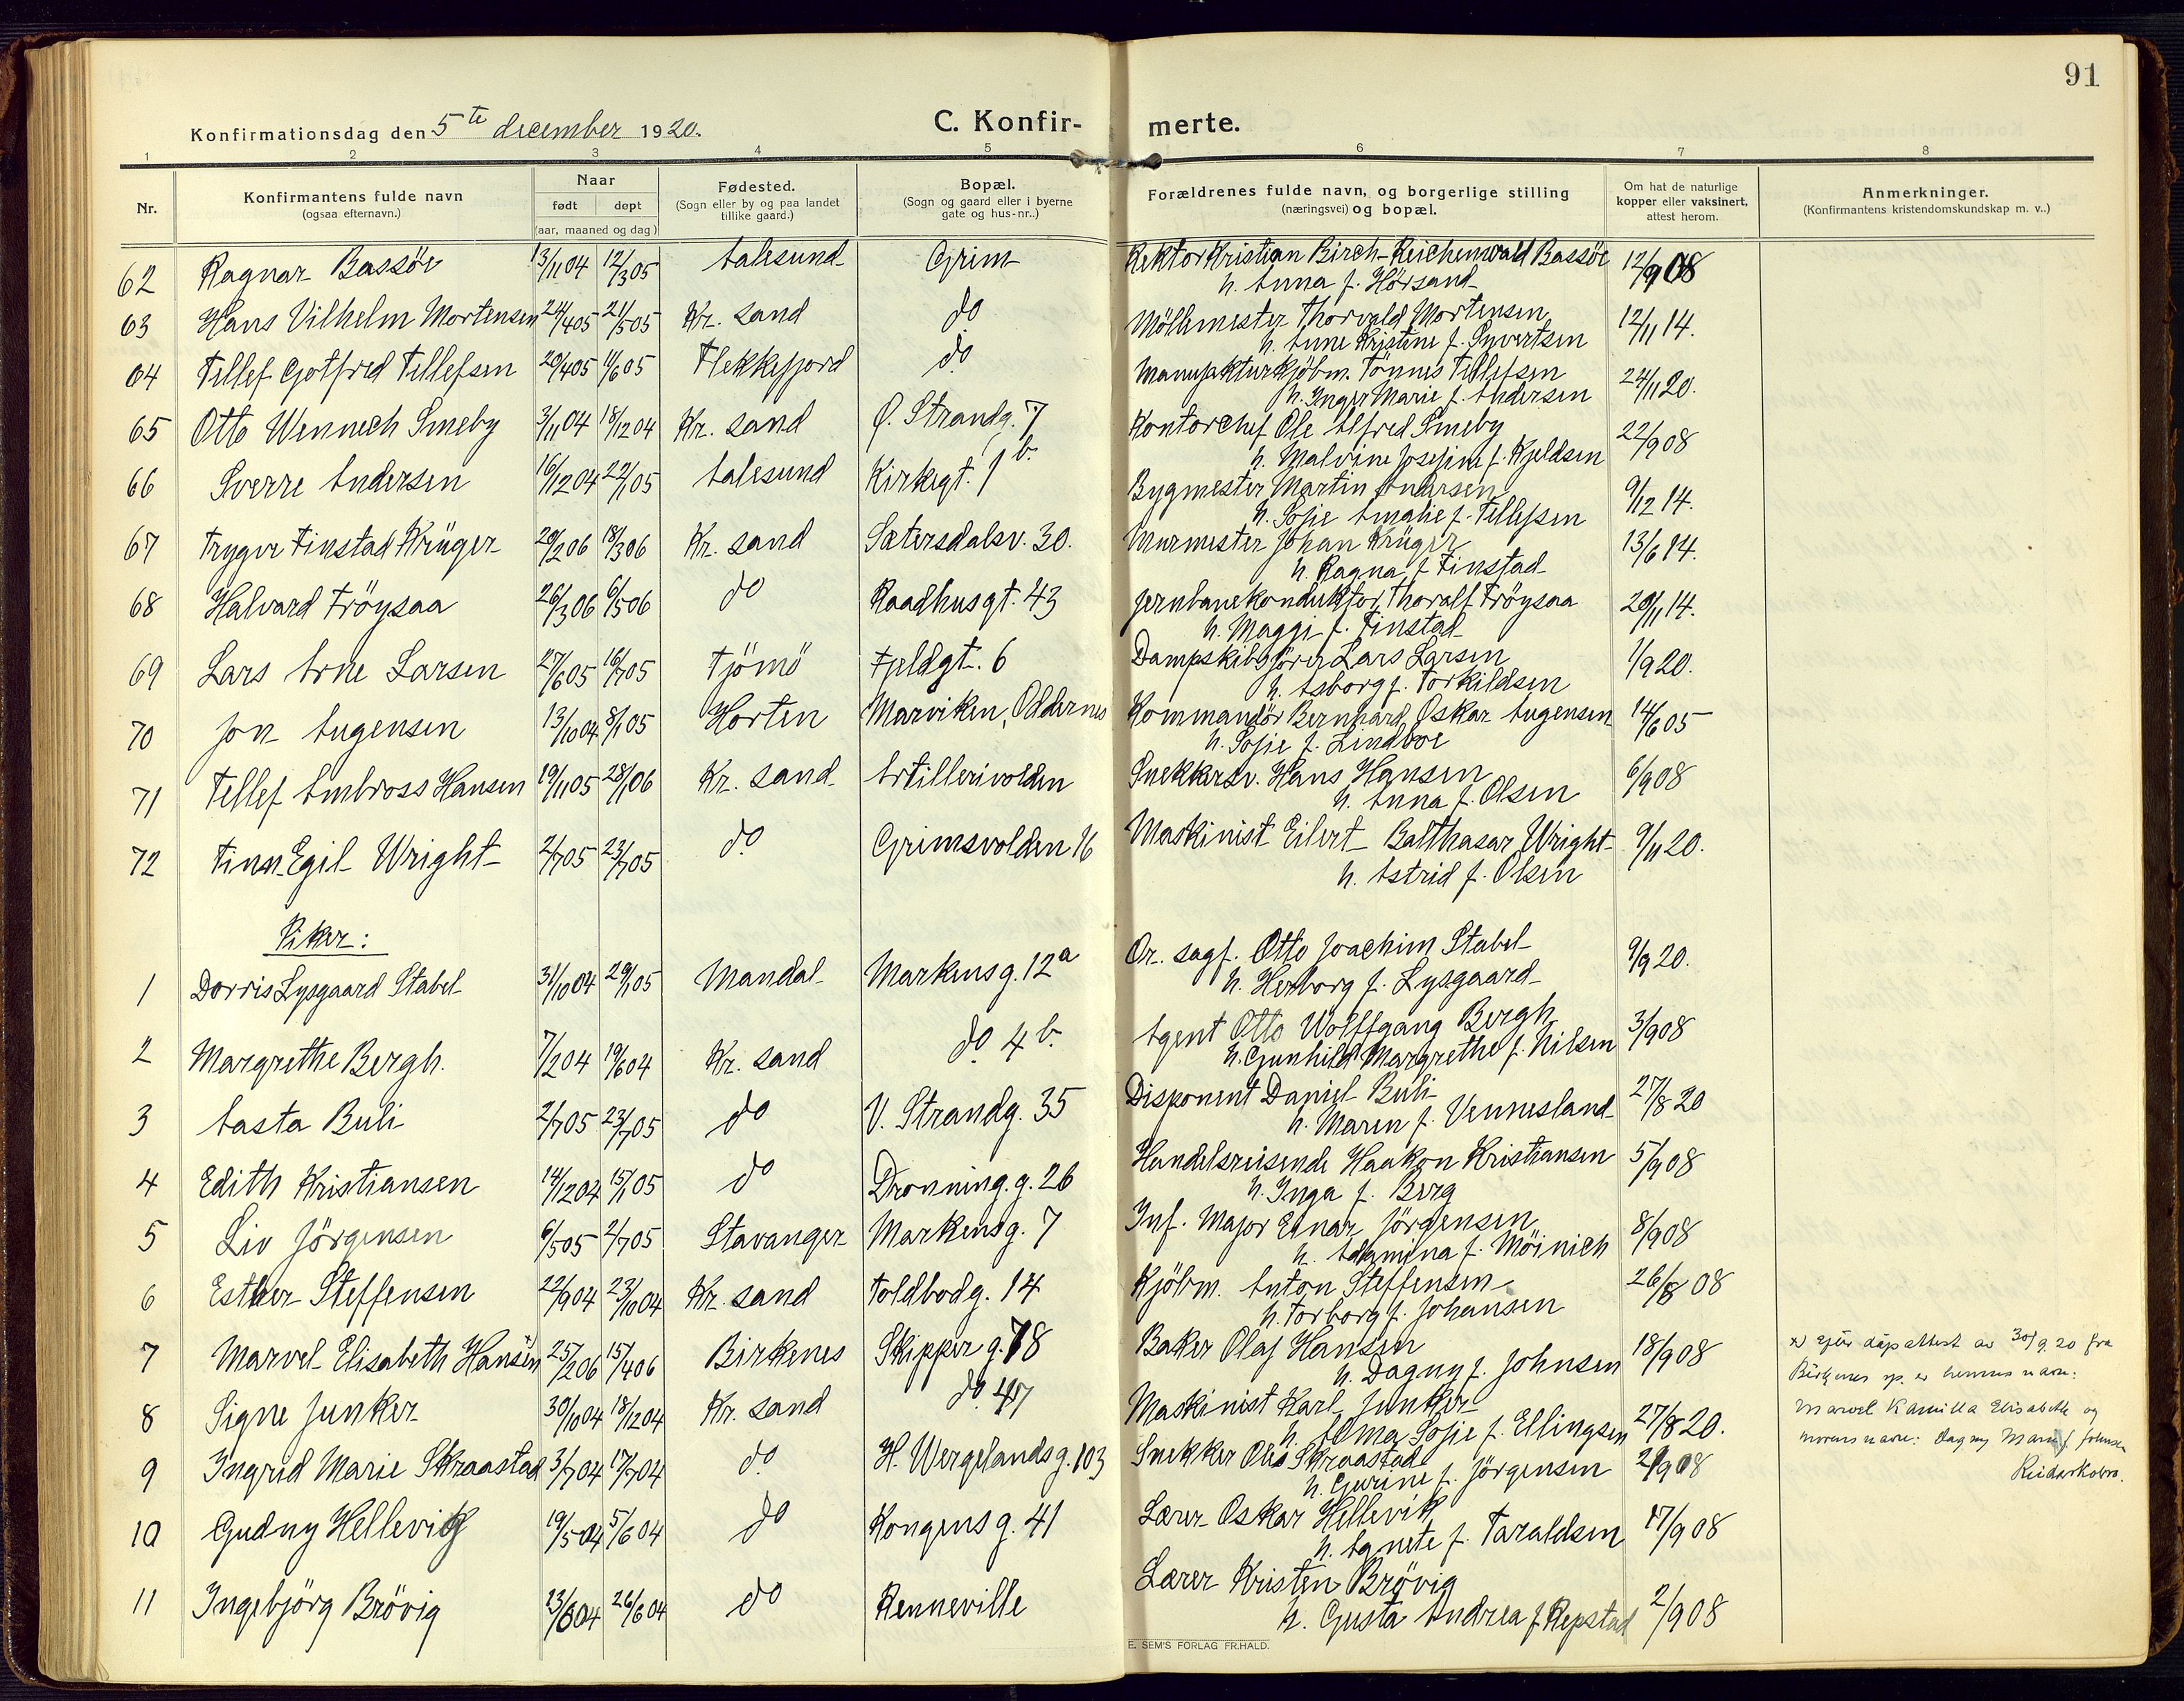 91
Konfirmationsdag den 5te december 1920.
C. Konfir-merte.
1 2 3 4 5 6 7 8
Nr.
Konfirmantens fulde navn
(ogsaa efternavn.)
Naar
født døpt
(aar, maaned og dag)
Fødested.
(Sogn eller by og paa landet
tillike gaard.)
Bopæl.
(Sogn og gaard eller i byerne
gate og hus-nr..)
Forældrenes fulde navn, og borgerlige stilling
(næringsvei) og bopæl.
Om hat de naturlige
kopper eller vaksinert,
attest herom.
Anmerkninger.
(Konfirmantens kristendomskundskap m. v..)
62 Ragnar Bassöe 13/11 04 12/3 05 Aalesund Grim Rektor Kristian Birch-Reichenwald Bassöe 12/9 08
h. Anna f. Hörsand
63 Hans Vilhelm Mortensen 24/4 05 21/5 05 Kr. sand do Möllemester Thorvald Mortensen 12/11 14.
h. Anne Kristine f. Syvertsen
64 Tellef Gotfred Tellefsen 29/4 05 11/6 05 Flekkefjord do Manufakturkjöbm. Tönnes Tellefsen 24/11 20.
h. Inger Marie f. Andersen
65 Otto Wennech Smeby 3/11 04 18/12 04 Kr. sand Ø. Strandg. 7 Kontorchef Ole Alfred Smeby 22/9 08
h. Malvine Josefine f. Kjeldsen
66 Sverre Andersen 16/12 04 22/1 05 Aalesund Kirkegt. 1 b. Bygmester Martin Andersen 9/12 14.
h. Sofie Amalie f. Tellefsen
67 Trygve Finstad Krüger 20/2 06 18/3 06 Kr. sand Sætersdalsv. 30. Murmester Johan Krüger 13/6 14.
h. Ragna f. Finstad
68 Halvard Fröysaa 26/3 06 6/5 06 do Raadhusgt. 43 Jernbanekonduktör Thoralf Fröysaa 20/11 14.
h. Maggi f. Finstad
69 Lars Arne Larsen 27/6 05 16/7 05 Tjömö Fjeldgt. 6 Dampskibsförer Lars Larsen 1/9 20.
h. Asborg f. Torkildsen
70 Jon Augensen 13/10 04 8/1 05 Horten Marviken, Oddernes Kommandör Bernhard Oskar Augensen 14/6 05
h. Sofie f. Lindboe
71 Tellef Ambross Hansen 19/11 05 28/1 06 Kr. sand Artillerivolden Snekkersv. Hans Hansen 6/9 08
h. Anna f. Olsen
72 Finn Egil Wright 2/7 05 23/7 05 do Grimsvolden 16 Maskinist Eilert Balthasar Wright 9/11 20.
h. Astrid f. Olsen
Piker:
1 Dorris Lysgaard Stabel 31/10 04 29/1 05 Mandal Markensg. 12 a Or. sagf. Otto Joachim Stabel 9/9 20.
h. Herborg f. Lysgaard
2 Margrethe Bergh. 7/2 04 19/6 04 Kr. sand do 4 b. Agent Otto Wolffgang Bergh 3/9 08
h. Gunhild Margrethe f. Nilsen
3 Aasta Buli 2/7 05 23/7 05 do V. Strandg. 35 Disponent Daniel Buli 27/8 20
h. Maren f. Vennesland
4 Edith Kristiansen 14/12 04 15/1 05 do Dronning. g. 26 Handelsreisende Haakon Kristiansen 5/9 08
h. Inga f. Berg
5 Liv Jörgensen 6/5 05 2/7 05 Stavanger Markensg. 7 Inf. Major Einar Jörgensen 8/9 08
h. f. Möinich
6 Esther Steffensen 22/9 04 23/10 04 Kr. sand Toldbodg. 14 Kjöbm. Anton Steffensen 26/8 08
h. Torborg f. Johansen
7 Marvel Elisabeth Hansen 25/2 06 15/4 06 Birkenes Skipperg. 78 Baker Olaf Hansen 18/9 08
h. Dagny f. Johnsen
x) efter dåpsattest av 30/9.20 fra
Birkenes sp. er hennes navn:
Marvel Kamilla Elisabeth og
morens navn: Dagny Marie f. Johnsen
8 Signe Junker 30/10 04 18/12 04 Kr. sand do 47 Maskinist Karl Junker 27/8 20.
h. Alma Sofie f. Ellingsen
9 Ingrid Marie Skraastad 3/7 04 17/7 04 do H. Wergelandsg. 103 Snekker Olai Skraastad 29/9 08
h. Gurine f. Jörgensen
10 Gudny Hellevik 19/5 04 5/6 04 do Kongensg. 41 Lærer Oskar Hellevik 17/9 08
h. Agnete f. Taraldsen
11 Ingebjörg Brövig 13/6 04 26/6 04 do Renneville Lærer Kristen Brövig 2/9 08
h. Gusta Andrea f. Repstad
E. SEM'S FORLAG FR.HALD.